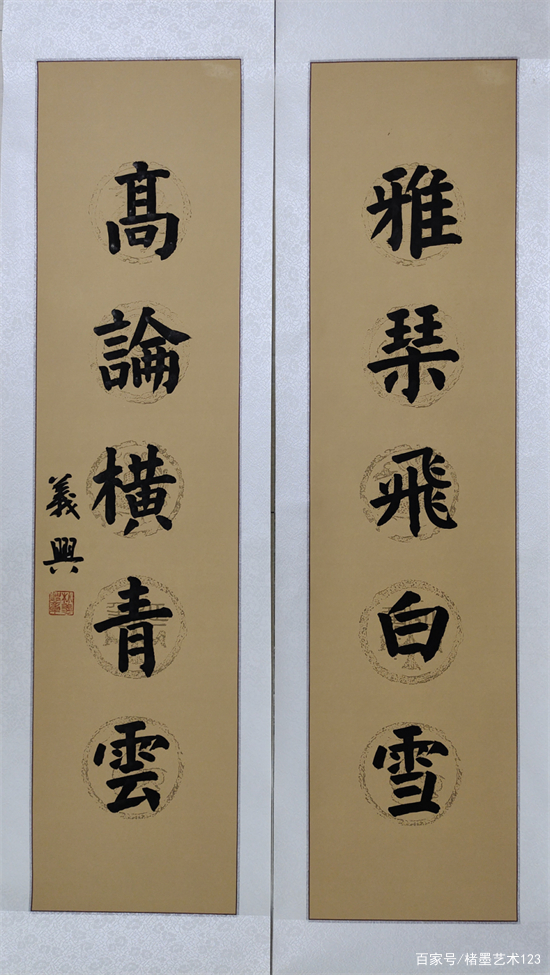 雅琴飛白雪
高論橫青雲
義興
百家号/楮墨艺术123